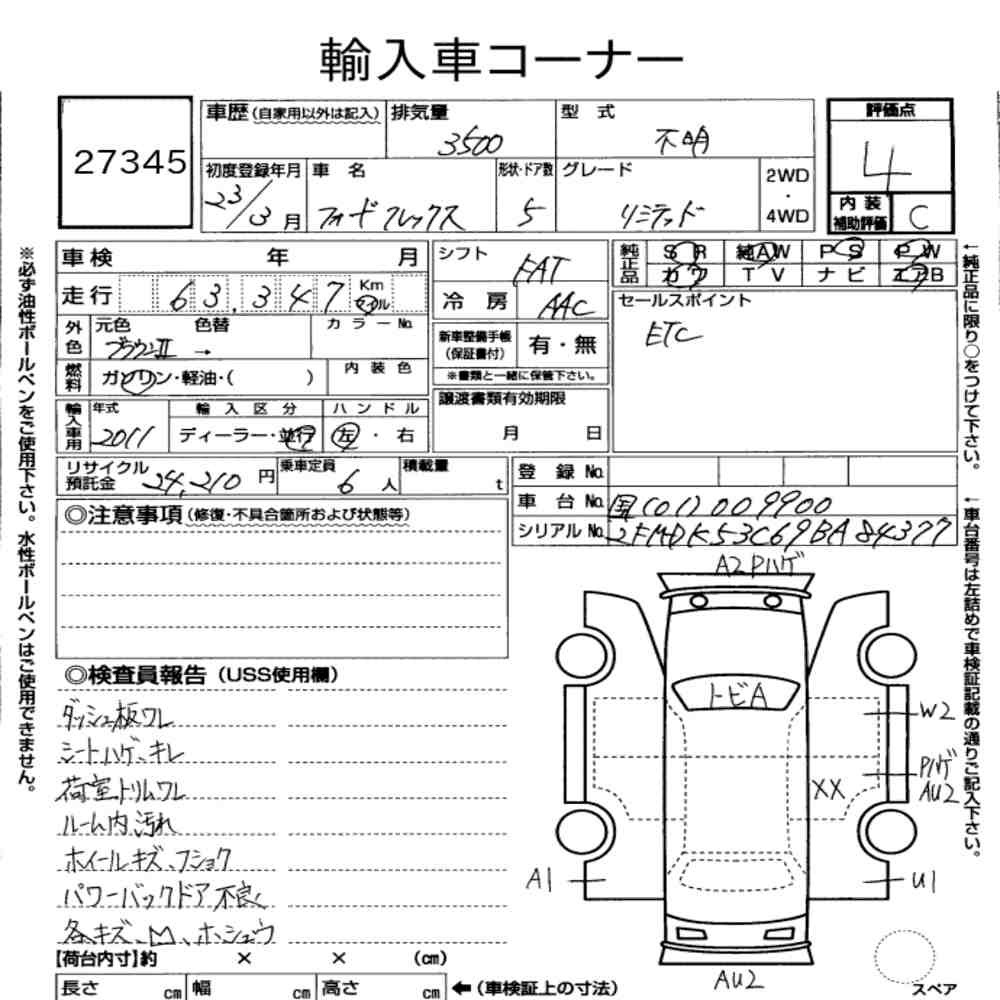 輸入車コーナー
27345
車歴(自家用以外は記入) 排気量 3500 型式 不明
評価点 4
初度登録年月 23/3月 車名 フォードフレックス 形状・ドア数 5 グレード リミテッド 2WD・4WD
内装補助評価 C
車検 年 月
シフト FAT
純正品 SR 純AW PS PW
カワ TV ナビ エアB
走行 63,347 Km マイル
冷房 AAC
セールスポイント
ETC
外色 元色 色替 カラーNo.
ブラウンII →
新車整備手帳(保証書付) 有・無
※書類と一緒に保管下さい。
燃料 ガソリン・軽油・( ) 内装色
譲渡書類有効期限
月 日
輸入車用 年式 輸入区分 ハンドル
2011 ディーラー・並行 左・右
リサイクル預託金 24,210円 乗車定員 6人 積載量 t
登録No.
車台No. 国(01)009900
シリアルNo. 2FMDK53C69BA84377
◎注意事項(修復・不具合箇所および状態等)
◎検査員報告(USS使用欄)
ダッシュ板ワレ
シートハゲ、キレ
荷室トリムワレ
ルーム内汚れ
ホイールキズ、フショク
パワーバックドア不良
各キズ、凹、ホシュウ
【荷台内寸】約 × × (cm)
長さ cm 幅 cm 高さ cm ←(車検証上の寸法)
A2 Pハゲ
トビA
W2
Pハゲ
AU2
XX
A1
U1
AU2
スペア
※必ず油性ボールペンをご使用下さい。水性ボールペンはご使用できません。
←純正品に限り○をつけて下さい。
←車台番号は左詰めで車検証記載の通りご記入下さい。